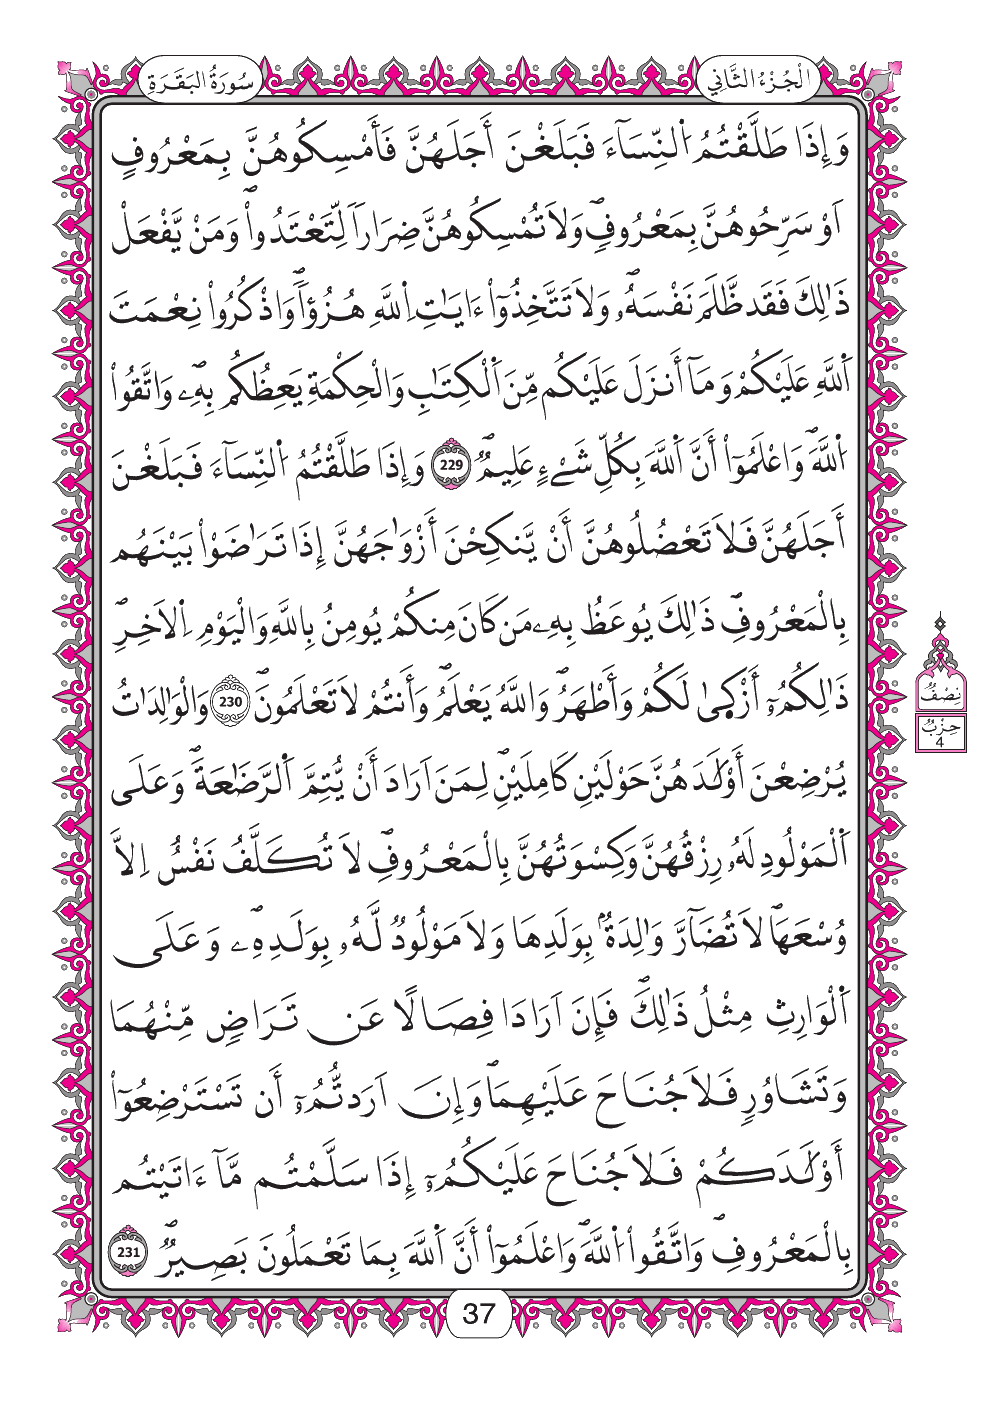 الْجُزْءُ الثَّانِي
سُورَةُ الْبَقَرَةِ
وَإِذَا طَلَّقْتُمُ اُ۬لنِّسَآءَ فَبَلَغْنَ أَجَلَهُنَّ فَأَمْسِكُوهُنَّ بِمَعْرُوفٍ
اَوْ سَرِّحُوهُنَّ بِمَعْرُوفٖۖ وَلَا تُمْسِكُوهُنَّ ضِرَاراٗ لِّتَعْتَدُواْۖ وَمَنْ يَّفْعَلْ
ذَٰلِكَ فَقَد ظَّلَمَ نَفْسَهُۥۖ وَلَا تَتَّخِذُوٓاْ ءَايَٰتِ اِ۬للَّهِ هُزُؤاٗۖ وَاذْكُرُواْ نِعْمَتَ
اَ۬للَّهِ عَلَيْكُمْ وَمَآ أَنزَلَ عَلَيْكُم مِّنَ اَ۬لْكِتَٰبِ وَالْحِكْمَةِ يَعِظُكُم بِهِۦۖ وَاتَّقُواْ
اُ۬للَّهَۖ وَاعْلَمُوٓاْ أَنَّ اَ۬للَّهَ بِكُلِّ شَےْءٍ عَلِيمٞۖ 229 وَإِذَا طَلَّقْتُمُ اُ۬لنِّسَآءَ فَبَلَغْنَ
أَجَلَهُنَّ فَلَا تَعْضُلُوهُنَّ أَنْ يَّنكِحْنَ أَزْوَٰجَهُنَّ إِذَا تَرَٰضَوْاْ بَيْنَهُم
بِالْمَعْرُوفِۖ ذَٰلِكَ يُوعَظُ بِهِۦ مَن كَانَ مِنكُمْ يُومِنُ بِاللَّهِ وَالْيَوْمِ اِ۬لَاخِرِۖ
ذَٰلِكُمُۥٓ أَزْكَىٰ لَكُمْ وَأَطْهَرُۖ وَاللَّهُ يَعْلَمُۖ وَأَنتُمْ لَا تَعْلَمُونَۖ 230 وَالْوَٰلِدَٰتُ
يُرْضِعْنَ أَوْلَٰدَهُنَّ حَوْلَيْنِ كَامِلَيْنِۖ لِمَنَ اَرَادَ أَنْ يُّتِمَّ اَ۬لرَّضَٰعَةَۖ وَعَلَى
اَ۬لْمَوْلُودِ لَهُۥ رِزْقُهُنَّ وَكِسْوَتُهُنَّ بِالْمَعْرُوفِۖ لَا تُكَلَّفُ نَفْسٌ اِلَّا
وُسْعَهَاۖ لَا تُضَآرَّ وَٰلِدَةُۢ بِوَلَدِهَا وَلَا مَوْلُودٞ لَّهُۥ بِوَلَدِهِۦۖ وَعَلَى
اَ۬لْوَارِثِ مِثْلُ ذَٰلِكَۖ فَإِنَ اَرَادَا فِصَالاً عَن تَرَاضٖ مِّنْهُمَا
وَتَشَاوُرٖ فَلَا جُنَاحَ عَلَيْهِمَاۖ وَإِنَ اَرَدتُّمُۥٓ أَن تَسْتَرْضِعُوٓاْ
أَوْلَٰدَكُمْ فَلَا جُنَاحَ عَلَيْكُمُۥٓ إِذَا سَلَّمْتُم مَّآ ءَاتَيْتُم
بِالْمَعْرُوفِۖ وَاتَّقُواْ اُ۬للَّهَۖ وَاعْلَمُوٓاْ أَنَّ اَ۬للَّهَ بِمَا تَعْمَلُونَ بَصِيرٞۖ 231
نِصْفُ
حِزْبُ
4
37